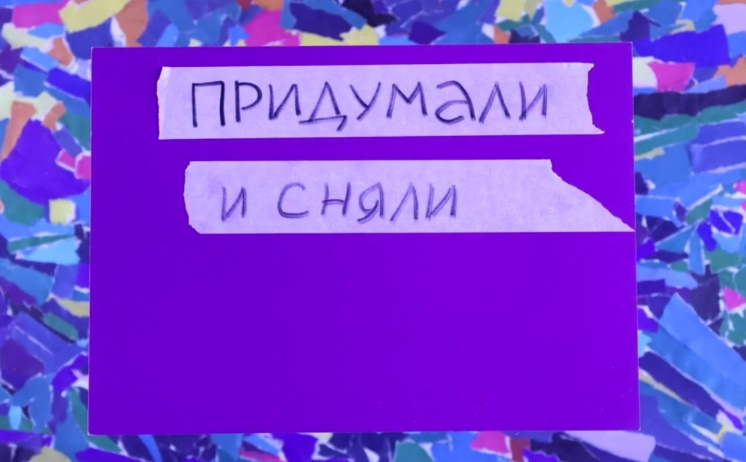 ПРИДУМАЛИ
И СНЯЛИ